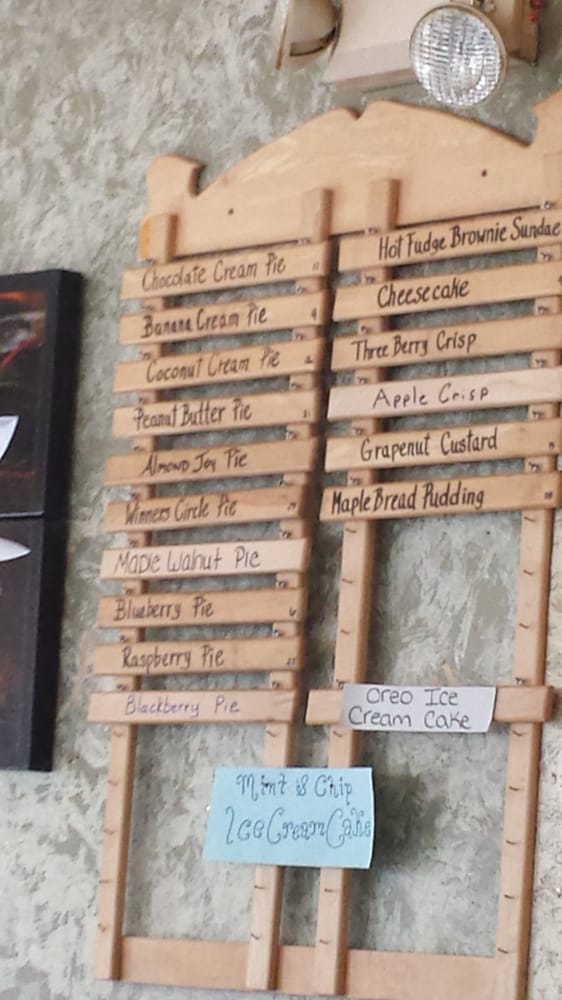 Chocolate Cream Pie
Banana Cream Pie
Coconut Cream Pie
Peanut Butter Pie
Almond Joy Pie
Winners Circle Pie
Maple Walnut Pie
Blueberry Pie
Raspberry Pie
Blackberry Pie
Hot Fudge Brownie Sundae
Cheesecake
Three Berry Crisp
Apple Crisp
Grapenut Custard
Maple Bread Pudding
Oreo Ice
Cream Cake
Mint & Chip
Ice Cream Cake